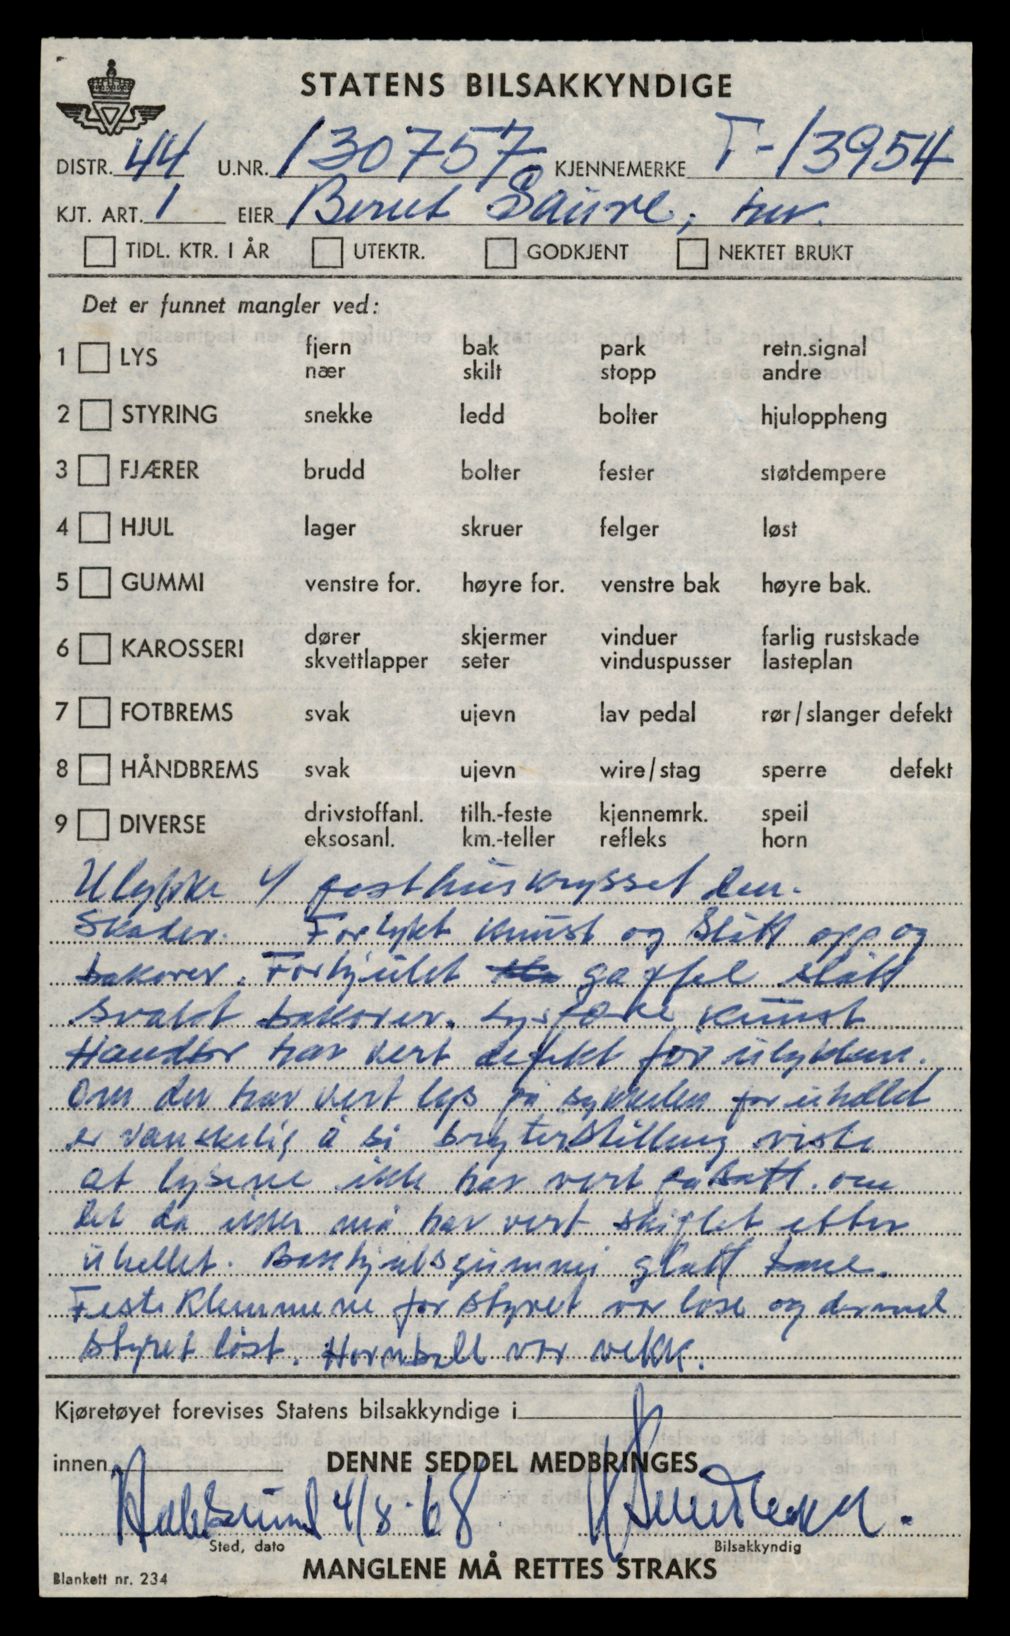 STATENS BILSAKKYNDIGE
DISTR. 44 U.NR. 130757 KJENNEMERKE T-13954
KJT. ART. 1 EIER Bernt Saure, her.
TIDL. KTR. I ÅR UTEKTR. GODKJENT NEKTET BRUKT
Det er funnet mangler ved:
1 LYS fjern bak park retn.signal
nær skilt stopp andre
2 STYRING snekke ledd bolter hjuloppheng
3 FJÆRER brudd bolter fester støtdempere
4 HJUL lager skruer felger løst
5 GUMMI venstre for. høyre for. venstre bak høyre bak.
6 KAROSSERI dører skjermer vinduer farlig rustskade
skvettlapper seter vinduspusser lasteplan
7 FOTBREMS svak ujevn lav pedal rør/slanger defekt
8 HÅNDBREMS svak ujevn wire/stag sperre defekt
9 DIVERSE drivstoffanl. tilh.-feste kjennemrk. speil
eksosanl. km.-teller refleks horn
Ulykke i posthuskrysset den.
Skader. Forlykt knust og slått opp og
bakover. Forhjulet gaffel slått
bakover. knust
har vert defekt før ulykken.
Om der har vert lys på sykkelen før uhellet
er vanskelig å si bryterstilling viste
at lysene ikke har vert påsatt. om
det da ikke må har vert skiftet etter
uhellet. Bakhjulsgummi glatt bane.
Feste klemmene for styret var løse og dermed
styret løst. Hornball var vekk.
Kjøretøyet forevises Statens bilsakkyndige i
innen DENNE SEDDEL MEDBRINGES
4/8-68
Sted, dato Bilsakkyndig
MANGLENE MÅ RETTES STRAKS
Blankett nr. 234